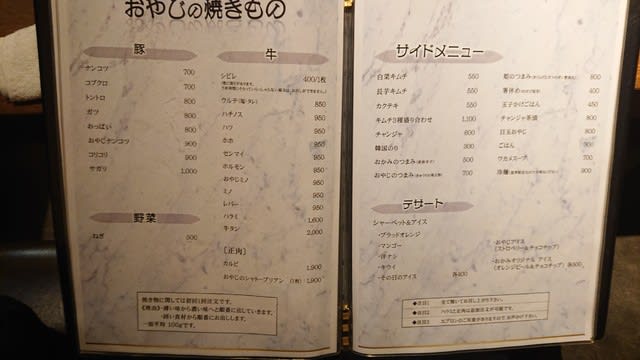 おやじの焼きもの
豚
ナンコツ 700
コブクロ 700
トントロ 800
ガツ 800
おっぱい 800
おやじナンコツ 900
コリコリ 900
サガリ 1,000
野菜
ねぎ 500
牛
シビレ 400/1枚
ウルテ(塩・タレ) 850
ハチノス 950
ハツ 950
ホホ 950
センマイ 950
ホルモン 950
おやじミノ 950
ミノ 950
レバー 950
ハラミ 1,600
牛タン 2,000
[正肉]
カルビ 1,900
おやじのシャトーブリアン (1枚) 1,900
焼き物に関しては最初1回注文です。
《理由》・薄い味から濃い味へと順番に出していきます。
・薄い食材から順番にお出しします。
一皿平均 100gです。
サイドメニュー
白菜キムチ 550
長芋キムチ 550
カクテキ 550
キムチ3種盛り合わせ 1,100
チャンジャ 600
韓国のり 300
おかみのつまみ 500
おやじのつまみ 700
姫のつまみ 800
箸休め 400
玉子かけごはん 450
チャンジャ茶漬 800
目玉おやじ 800
ごはん 300
ワカメスープ 700
冷麺 800
デザート
シャーベット&アイス
・ブラッドオレンジ
・マンゴー
・洋ナシ
・キウイ
・その日のアイス 各400
・おやじアイス
(ストロベリー&チョコチップ)
・おかみオリジナル アイス
(オレンジピール&チョコチップ) 各500
◆注目1 全て焼いてお召し上がり下さい。
◆注目2
◆注目3 エプロンのご用意がありますので お声かけ下さい。